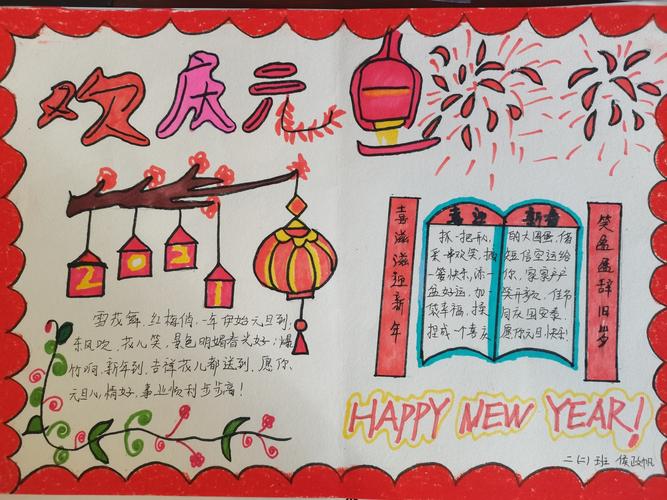 欢庆元旦
2021
雪花舞,红梅俏,一年伊始元旦到;
东风吹,花儿笑,景色明媚春光好;爆
竹响,新年到,吉祥花儿都送到,愿你
元旦心情好,事业顺利步步高!
喜滋滋迎新年
喜迎
新春
抓一把开心,
采一串欢笑,
一签快乐,添一
盆好运,加一
袋幸福,揉
捏成一个喜庆
的大圆蛋,借
短信空运给
你,家家户户
笑开颜,佳节
同庆国安泰,
愿你元旦快乐!
笑盈盈辞旧岁
HAPPY NEW YEAR!
二(二)班